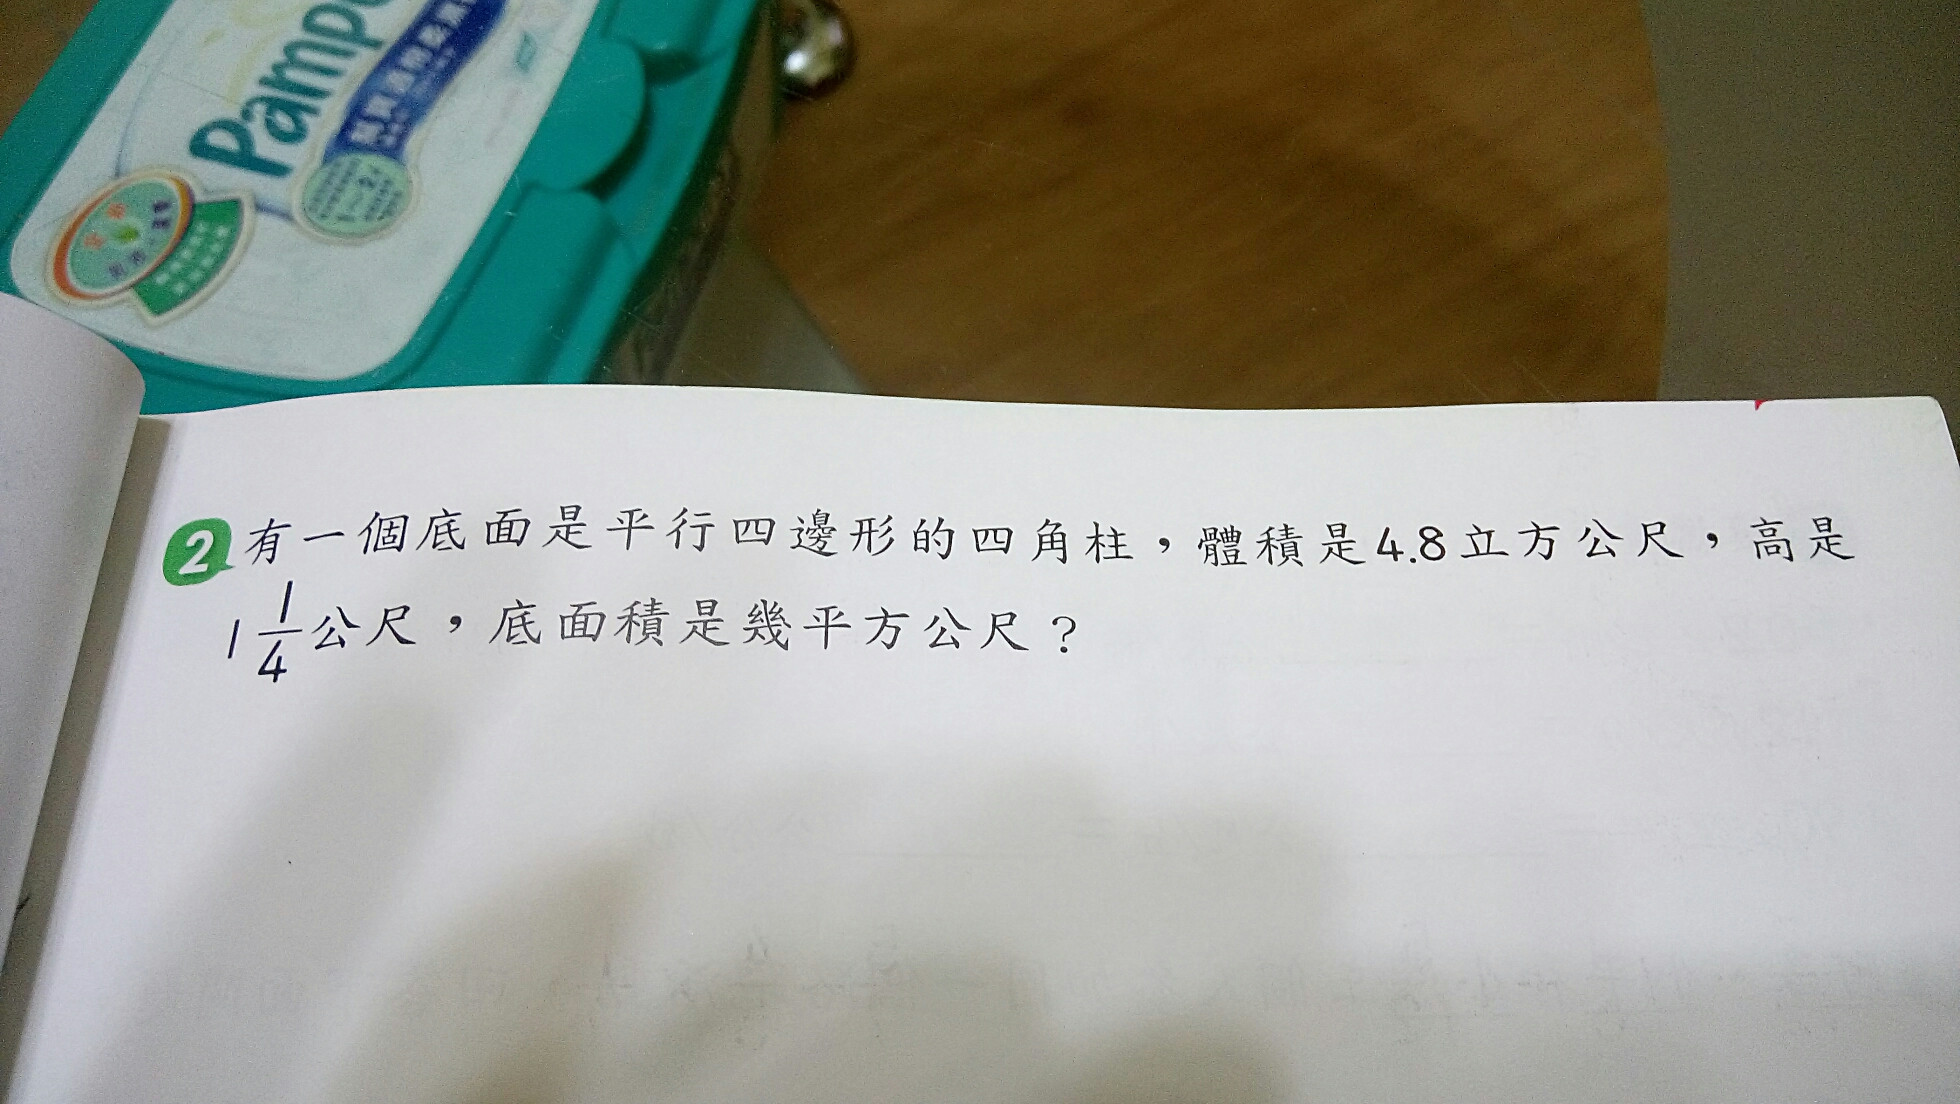 Pamp
2 有一個底面是平行四邊形的四角柱，體積是4.8立方公尺，高是
1 1/4 公尺，底面積是幾平方公尺？